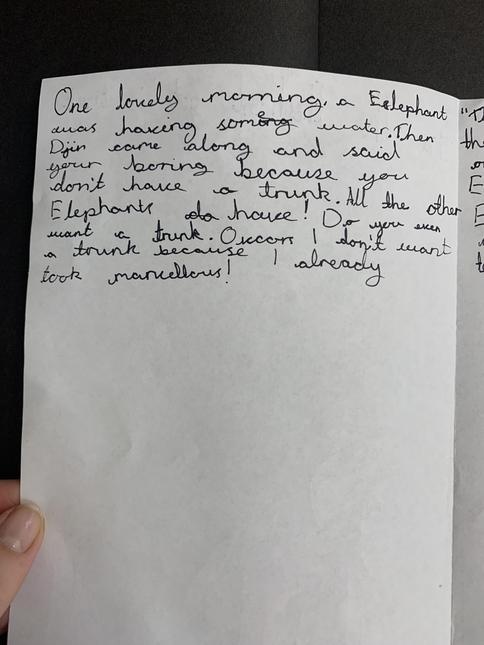 One lovely morning, a Eelephant
was having some water. Then
Djin came along and said
your boring because you
don't have a trunk. All the other
Elephants do have! Do you even
want a trunk. Ofcors I don't want
a trunk because I already
look marvellous!